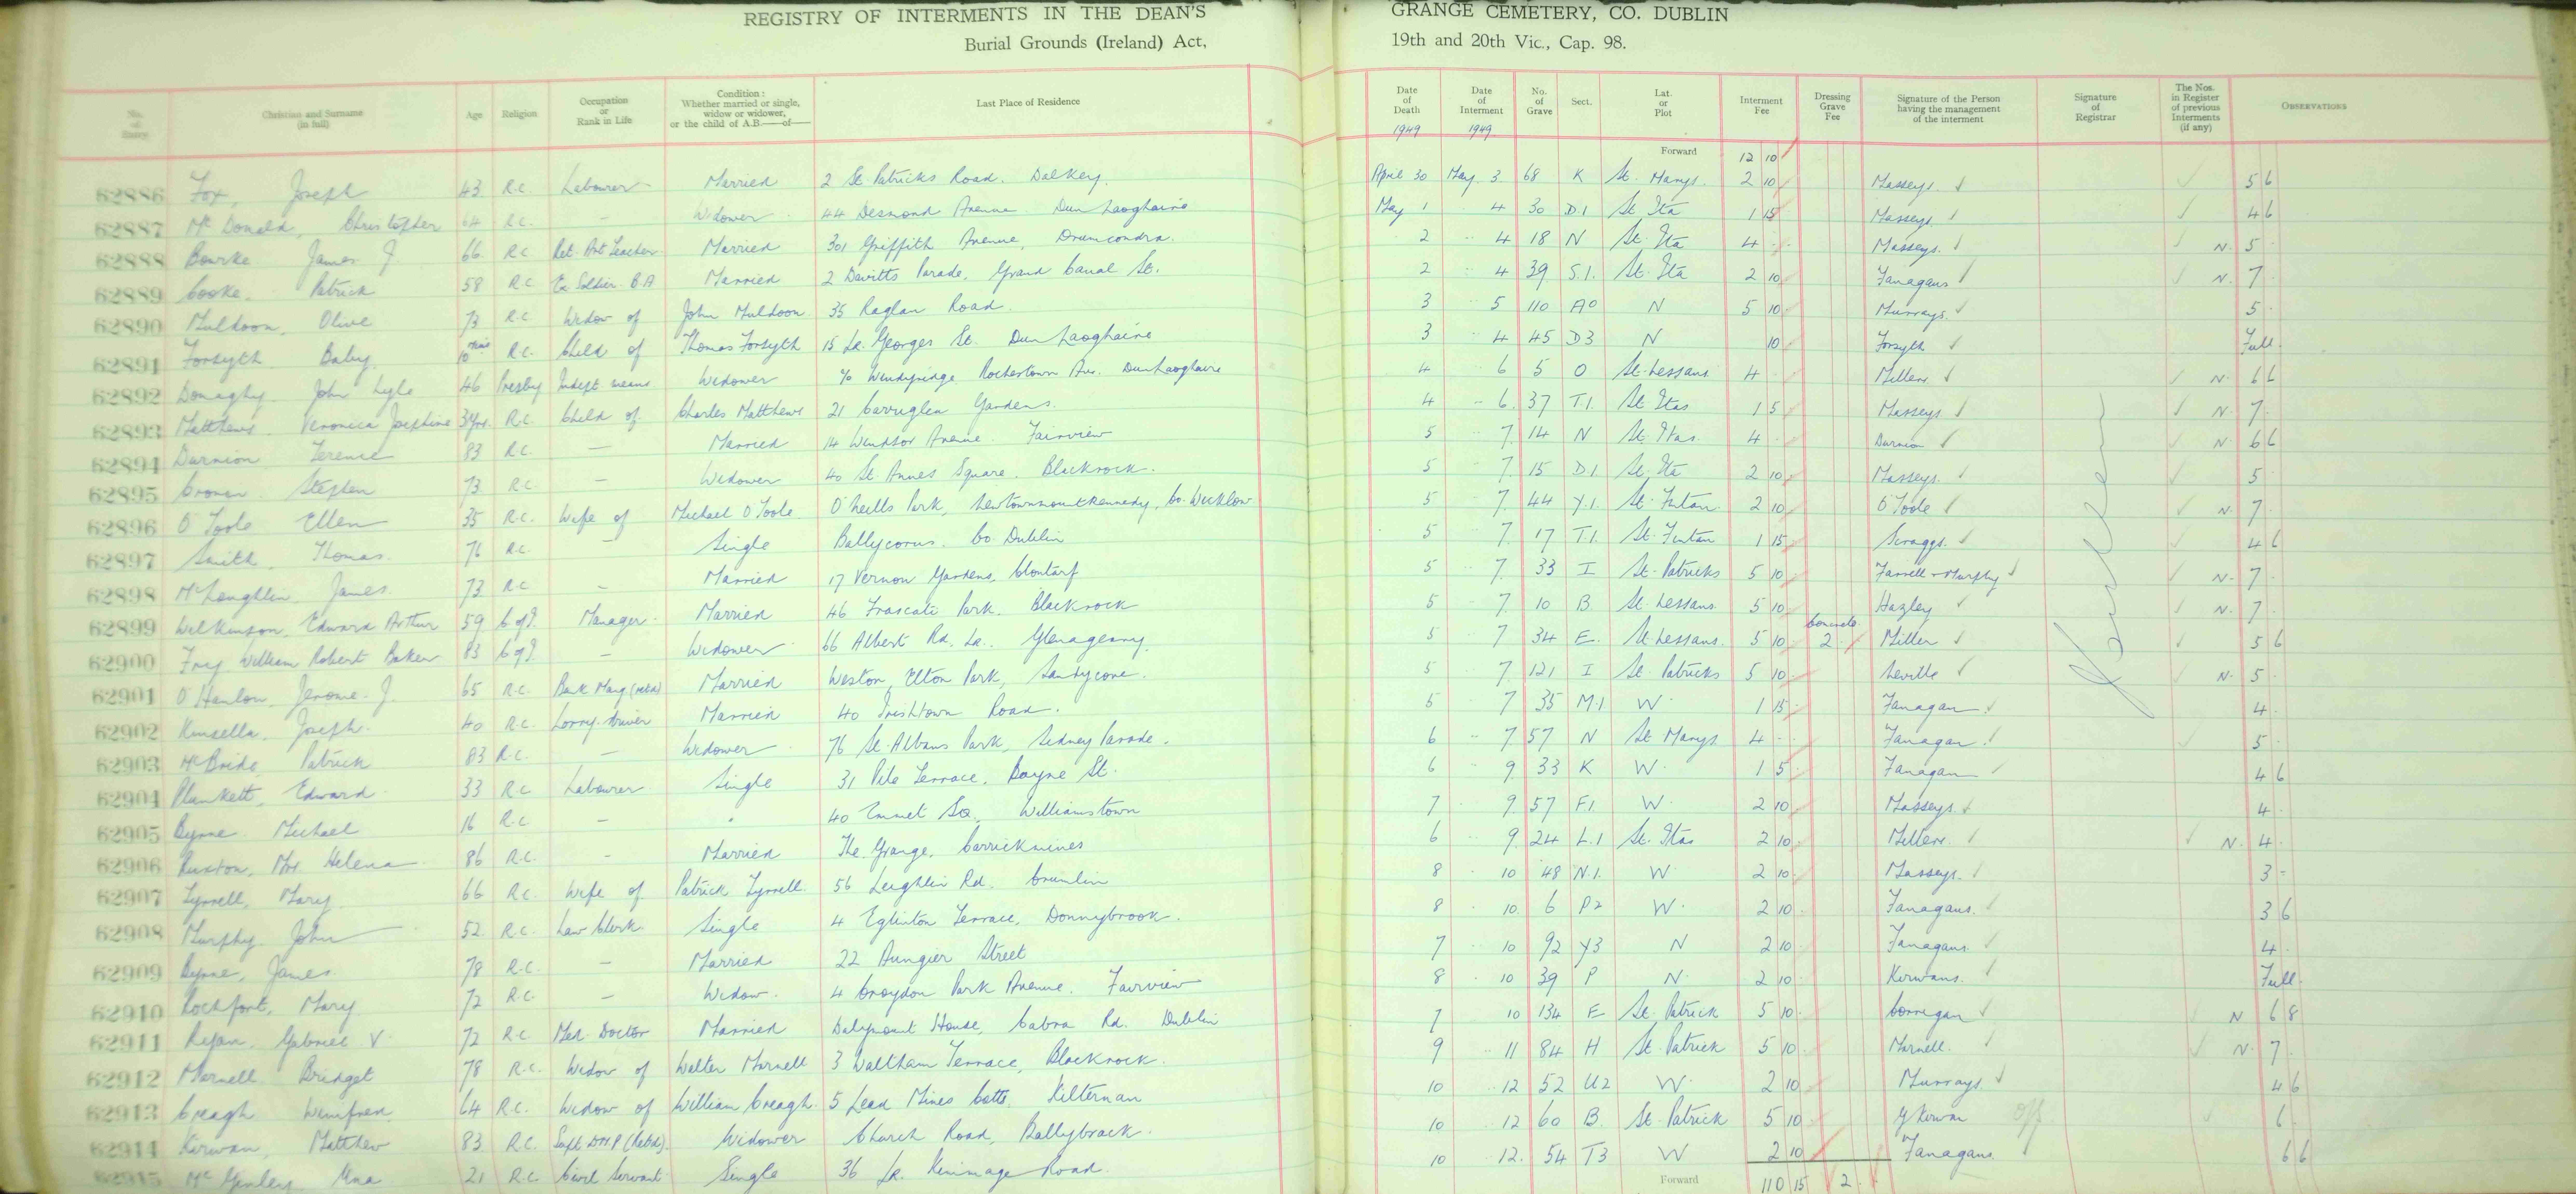 REGISTRY OF INTERMENTS IN THE DEAN'S GRANGE CEMETERY, CO. DUBLIN
Burial Grounds (Ireland) Act, 19th and 20th Vic., Cap. 98.
No. of Entry | Christian and Surname (in full) | Age | Religion | Occupation or Rank in Life | Condition: Whether married or single, widow or widower, or the child of A.B.—of— | Last Place of Residence | Date of Death | Date of Interment | No. of Grave | Sect. | Lat. or Plot | Interment Fee | Dressing Grave Fee | Signature of the Person having the management of the interment | Signature of Registrar | The Nos. in Register of previous Interments (if any) | OBSERVATIONS
1949 1949
Forward 12 10
62886 Fox, Joseph 43 R.C. Labourer Married 2 St Patricks Road. Dalkey. April 30 May 3 68 K St. Marys. 2 10 Masseys. 5 6
62887 McDonald, Christopher 64 R.C. – Widower 44 Desmond Avenue Dun Laoghaire May 1 4 30 D.1 St. Ita 1 15 Masseys. 4 6
62888 Bourke James J. 66 R.C. Ret. Art Teacher Married 301 Griffith Avenue, Drumcondra. 2 4 18 N St. Ita 4 - Masseys. N. 5
62889 Cooke. Patrick 58 R.C. Ex Soldier. B.A Married 2 Davitts Parade, Grand Canal St. 2 4 39 S.1. St. Ita 2 10 Fanagans N. 7
62890 Muldoon, Olive 73 R.C. Widow of John Muldoon 35 Raglan Road. 3 5 110 A0 N 5 10 Murrays. 5
62891 Forsyth Baby 10 mins R.C. Child of Thomas Forsyth 15 Lr. Georges St. Dun Laoghaire 3 4 45 D3 N 10 Forsyth Full.
62892 Donaghy. John Lyle 46 Presby Indept. means Widower % Windyridge Rochestown Ave. DunLaoghaire 4 6 5 O St. Nessans 4 Millers. N. 6 6
62893 Matthews. Veronica Josephine 3yrs. R.C. Child of Charles Matthews 21 Carruglen Gardens. 4 6. 37 T1. St. Itas 1 5 Masseys N. 7
62894 Durnion Terence 83 R.C. — Married 14 Windsor Avenue. Fairview 5 7. 14 N St. Itas. 4 Durnion N. 6 6
62895 Cronin. Stephen 73 R.C. – Widower 40 St. Annes Square. Blackrock. 5 7. 15 D.1. St. Ita 2 10 Masseys. 5
62896 O'Toole Ellen 35 R.C. Wife of Michael O'Toole O'Neills Park, Newtownmountkennedy, Co. Wicklow 5 7. 44 Y.1. St. Fintan. 2 10 O'Toole N. 7
62897 Smith, Thomas. 76 R.C. – Single Ballycorus. Co Dublin 5 7. 17 T.1. St. Fintan 1 15 Scraggs. 4 6
62898 McLoughlin, James. 73 R.C – Married 17 Vernon Gardens, Clontarf 5 7. 33 I St. Patricks 5 10 Farrell & Murphy N. 7
62899 Wilkinson, Edward Arthur 59 C of I. Manager Married 46 Frascati Park. Blackrock 5 7. 10 B. St. Nessans 5 10 Hazley N. 7
62900 Fry William Robert Baker 83 C of I. – Widower 66 Albert Rd. Lr. Glenageary. 5 7 34 E. St. Nessans. 5 10 Concrete 2 Miller 5 6
62901 O'Hanlon, Jerome. J. 65 R.C. Bank Mang. (retd) Married Weston, Elton Park, Sandycove. 5 7. 121 I St. Patricks 5 10 Neville N. 5
62902 Kinsella, Joseph. 40 R.C. Lorry driver Married 40 Irishtown Road. 5 7 35 M.1 W. 1 15 Fanagan. 4
62903 McBride, Patrick 83 R.C. – Widower 76 St. Albans Park, Sidney Parade. 6 7 57 N St Marys 4 - Fanagan. 5
62904 Plunkett, Edward 33 R.C Labourer Single 31 Pile Terrace. Boyne St. 6 9. 33 K W. 1 5 Fanagan 4 6
62905 Byrne. Michael 16 R.C – 40 Emmet Sq., Williamstown 7 9. 57 F1. W. 2 10 Masseys. 4
62906 Ruxton, Mrs Helena 86 R.C. – Married The Grange, Carrickmines 6 9. 24 L.1 St. Itas 2 10 Millers. N. 4
62907 Tyrrell, Mary 66 R.C. Wife of Patrick Tyrrell. 56 Leighlin Rd. Crumlin 8 10 48 N.1. W 2 10 Masseys. 3 -
62908 Murphy. John 52. R.C. Law Clerk Single 4 Eglinton Terrace, Donnybrook. 8 10. 6 P2 W. 2 10 Fanagans. 3 6
62909 Byrne, James. 78 R.C. – Married 22 Aungier Street 7 10 92 Y3 N 2 10 Fanagans. 4
62910 Rochfort, Mary 72 R.C. – Widow. 4 Croydon Park Avenue. Fairview 8 10 39 P N. 2 10 Kirwans. Full.
62911 Ryan, Gabriel V. 72 R.C. Med. Doctor Married Dalymount House, Cabra Rd. Dublin 7 10 134 E St. Patrick 5 10 Corrigan N 6 8
62912 Marnell Bridget 78 R.C. Widow of Walter Marnell 3 Waltham Terrace, Blackrock. 9 11 84 H St. Patrick 5 10 Marnell. N. 7
62913 Creagh Winifred. 64 R.C. Widow of William Creagh. 5 Lead Mines Cotts. Kilternan 10 12 52 U2 W. 2 10 Murrays 4 6
62914 Kirwan, Matthew 83 R.C. Supt. D.M.P (Retd). Widower Church Road, Ballybrack. 10 12 60 B. St. Patrick 5 10 Kirwan off 6
62915 McGinley Una 21 R.C. Civil Servant Single 36 Lr. Kimmage Road. 10 12. 54 T3 W 2 10 Fanagans. 6 6
Forward 110 15 2